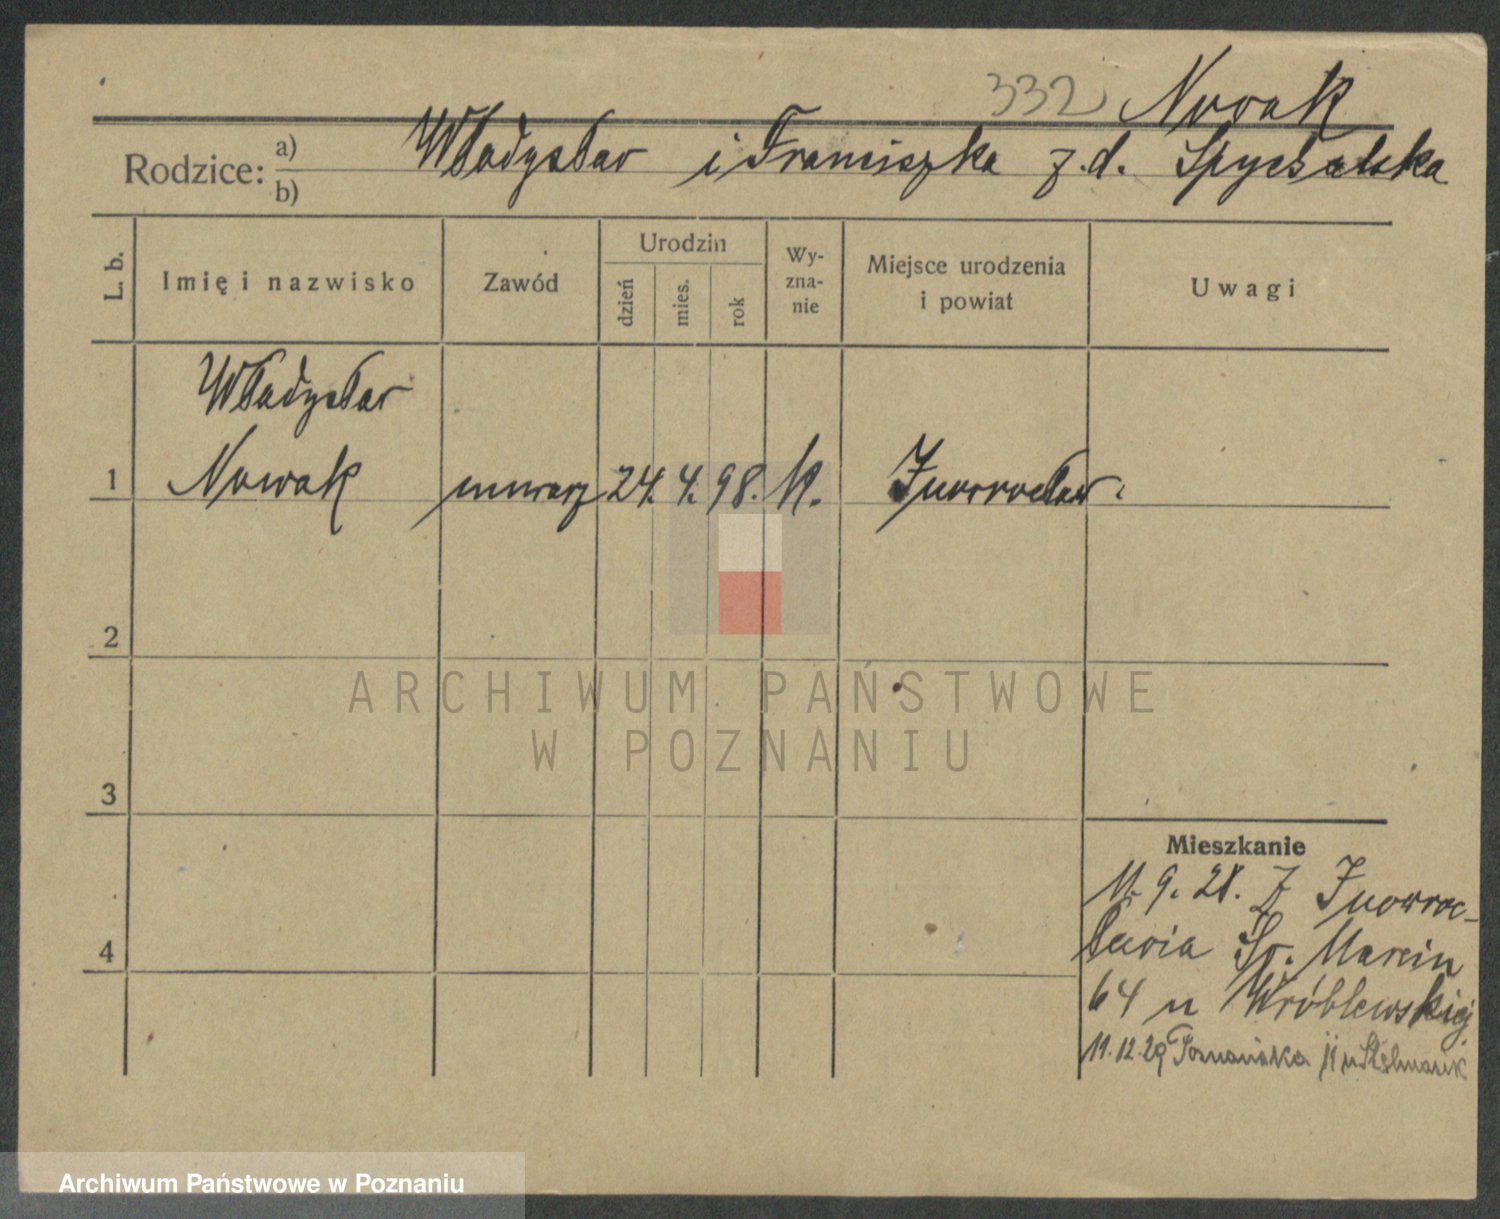 332 Nowak
Rodzice: a) b) Władysław i Franciszka z.d. Spychalska
L. b.
Imię i nazwisko
Zawód
Urodzin
dzień
mies.
rok
Wy-
zna-
nie
Miejsce urodzenia
i powiat
Uwagi
Władysław
1 Nowak murarz 24. 4. 98. K. Inowrocław.
2
ARCHIWUM PAŃSTWOWE
W POZNANIU
3
Mieszkanie
11. 9. 28. Z Inowroc-
ławia Św. Marcin
4
64 u Wróblewskiej
11.12.29 Poznańska u Stelmasik
Archiwum Państwowe w Poznaniu